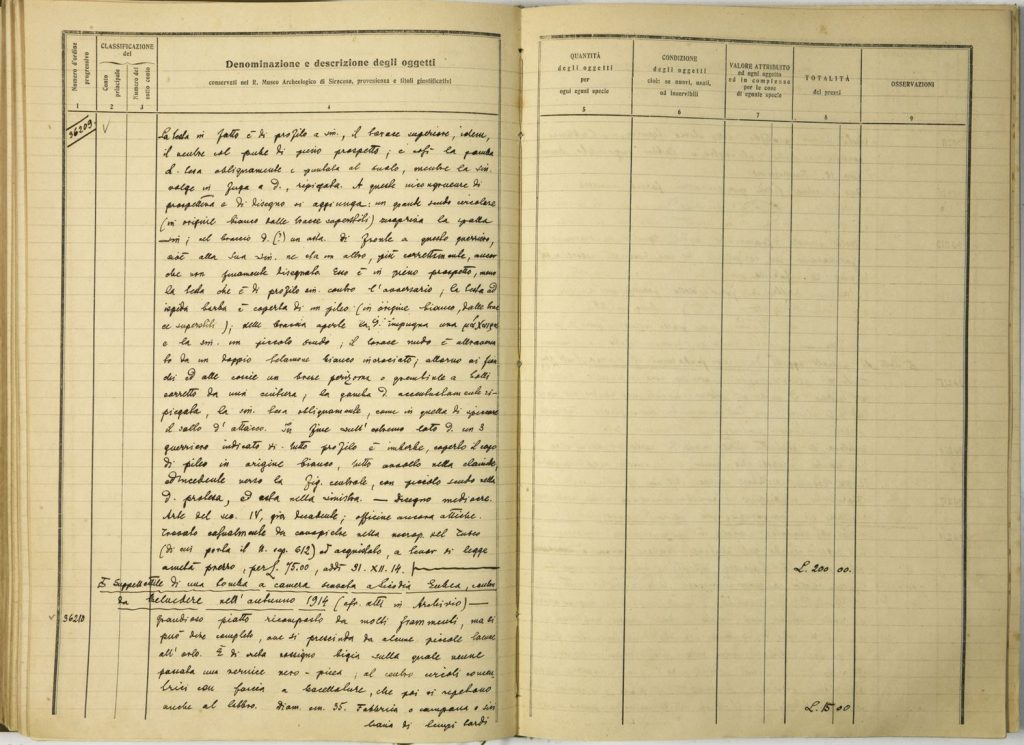 Numero d'ordine progressivo
CLASSIFICAZIONE del
Conto principale
Numero del sotto conto
Denominazione e descrizione degli oggetti
conservati nel R. Museo Archeologico di Siracusa, provenienza e titoli giustificativi
1 2 3 4
36209
La testa in fatto è di profilo a sin., il torace superiore, idem,
il ventre col pube di pieno prospetto; e così la gamba
d. tesa obliquamente e puntata al suolo, mentre la sin.
volge in fuga a d., ripiegata. A queste incongruenze di
prospettiva e di disegno si aggiunga: un grande scudo circolare
(in origine bianco dalle tracce superstiti) la spalla
sin; nel braccio d. (?) un asta. Di fronte a questo guerriero,
cioè alla sua sin. ne sta un altro, più correttamente, ancor
che non finamente disegnato. Esso è in pieno prospetto, meno
la testa che è di profilo sin. contro l'avversario; la testa ad
ispida barba è coperta di un pileo (in origine bianco, dalle trac
ce superstiti); nelle braccia aperte la d. impugna una
e la sin. un piccolo scudo; il torace nudo è attraversa
to da un doppio balamone bianco incrociato; attorno ai fian
chi ed alle coscie un breve perizoma o grembiule a
corretto da una cintura, la gamba d. accentuatamente ri-
piegata, la sin. tesa obliquamente, come in quella di spiccare
il salto d'attacco. In fine sull'estremo lato d. un 3
guerriero indicato di tutto profilo è imberbe, coperto il capo
di pileo in origine bianco, tutto avvolto nella clamide,
ed incedente verso la fig. centrale, con piccolo scudo nella
d. protesa, ed asta nella sinistra. — Disegno mediocre.
Arte del sec. IV, già decadente; officine ancora attiche.
Trovato casualmente da nella necrop. del Fusco
(di cui porta il N. sep. 612) ed acquistato, a tenor di legge
metà prezzo, per £. 75.00, addì 31. XII. 14.
Suppellettile di una tomba a camera scavata a Licodia Eubea, contra
da Belvedere nell'autunno 1914 (cfr. atti in Archivio) —
36210
Grandioso piatto ricomposto da molti frammenti, ma si
può dire completo, ove si prescinda da alcune piccole lacune
all'orlo. È di creta rossigno bigia sulla quale venne
passata una vernice nero-picea; al centro circoli concen
trici con fascia a baccellature, che poi si ripetono
anche al labbro. Diam. cm. 35. Fabbrica o campana o sici
liana di tempi tardi
QUANTITÀ degli oggetti per ogni egual specie
CONDIZIONE degli oggetti cioè: se nuovi, usati, od inservibili
VALORE ATTRIBUITO ad ogni oggetto ed in complesso per le cose di eguale specie
TOTALITÀ dei prezzi
OSSERVAZIONI
5 6 7 8 9
L. 200 00
L. 15 00